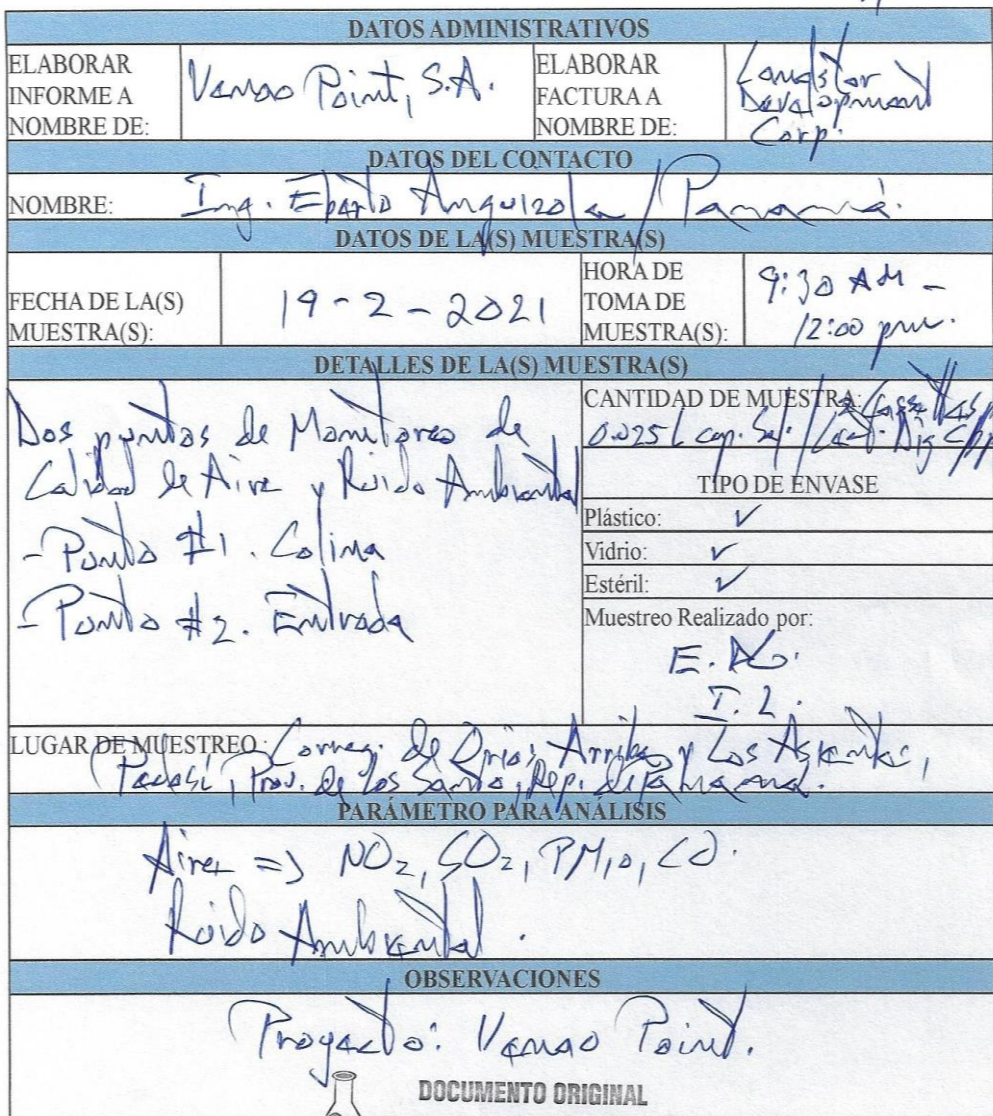 DATOS ADMINISTRATIVOS
ELABORAR INFORME A NOMBRE DE:
Venao Point, S.A.
ELABORAR FACTURA A NOMBRE DE:
Landstar Development Corp.
DATOS DEL CONTACTO
NOMBRE: Ing. Eberto Anguizola / Panamá.
DATOS DE LA(S) MUESTRA(S)
FECHA DE LA(S) MUESTRA(S):
19-2-2021
HORA DE TOMA DE MUESTRA(S):
9:30 AM -
12:00 pm.
DETALLES DE LA(S) MUESTRA(S)
Dos puntos de Monitoreo de
Calidad de Aire y Ruido Ambiental
- Punto #1. Colina
- Punto #2. Entrada
CANTIDAD DE MUESTRA:
0.025 L
TIPO DE ENVASE
Plástico: ✓
Vidrio: ✓
Estéril: ✓
Muestreo Realizado por:
LUGAR DE MUESTREO: Correg. de Oria Arriba y Los Asientos,
Pedasí, Prov. de Los Santos, Rep. de Panamá.
PARÁMETRO PARA ANÁLISIS
Aire => NO2, SO2, PM10, CO.
Ruido Ambiental.
OBSERVACIONES
Proyecto: Venao Point.
DOCUMENTO ORIGINAL